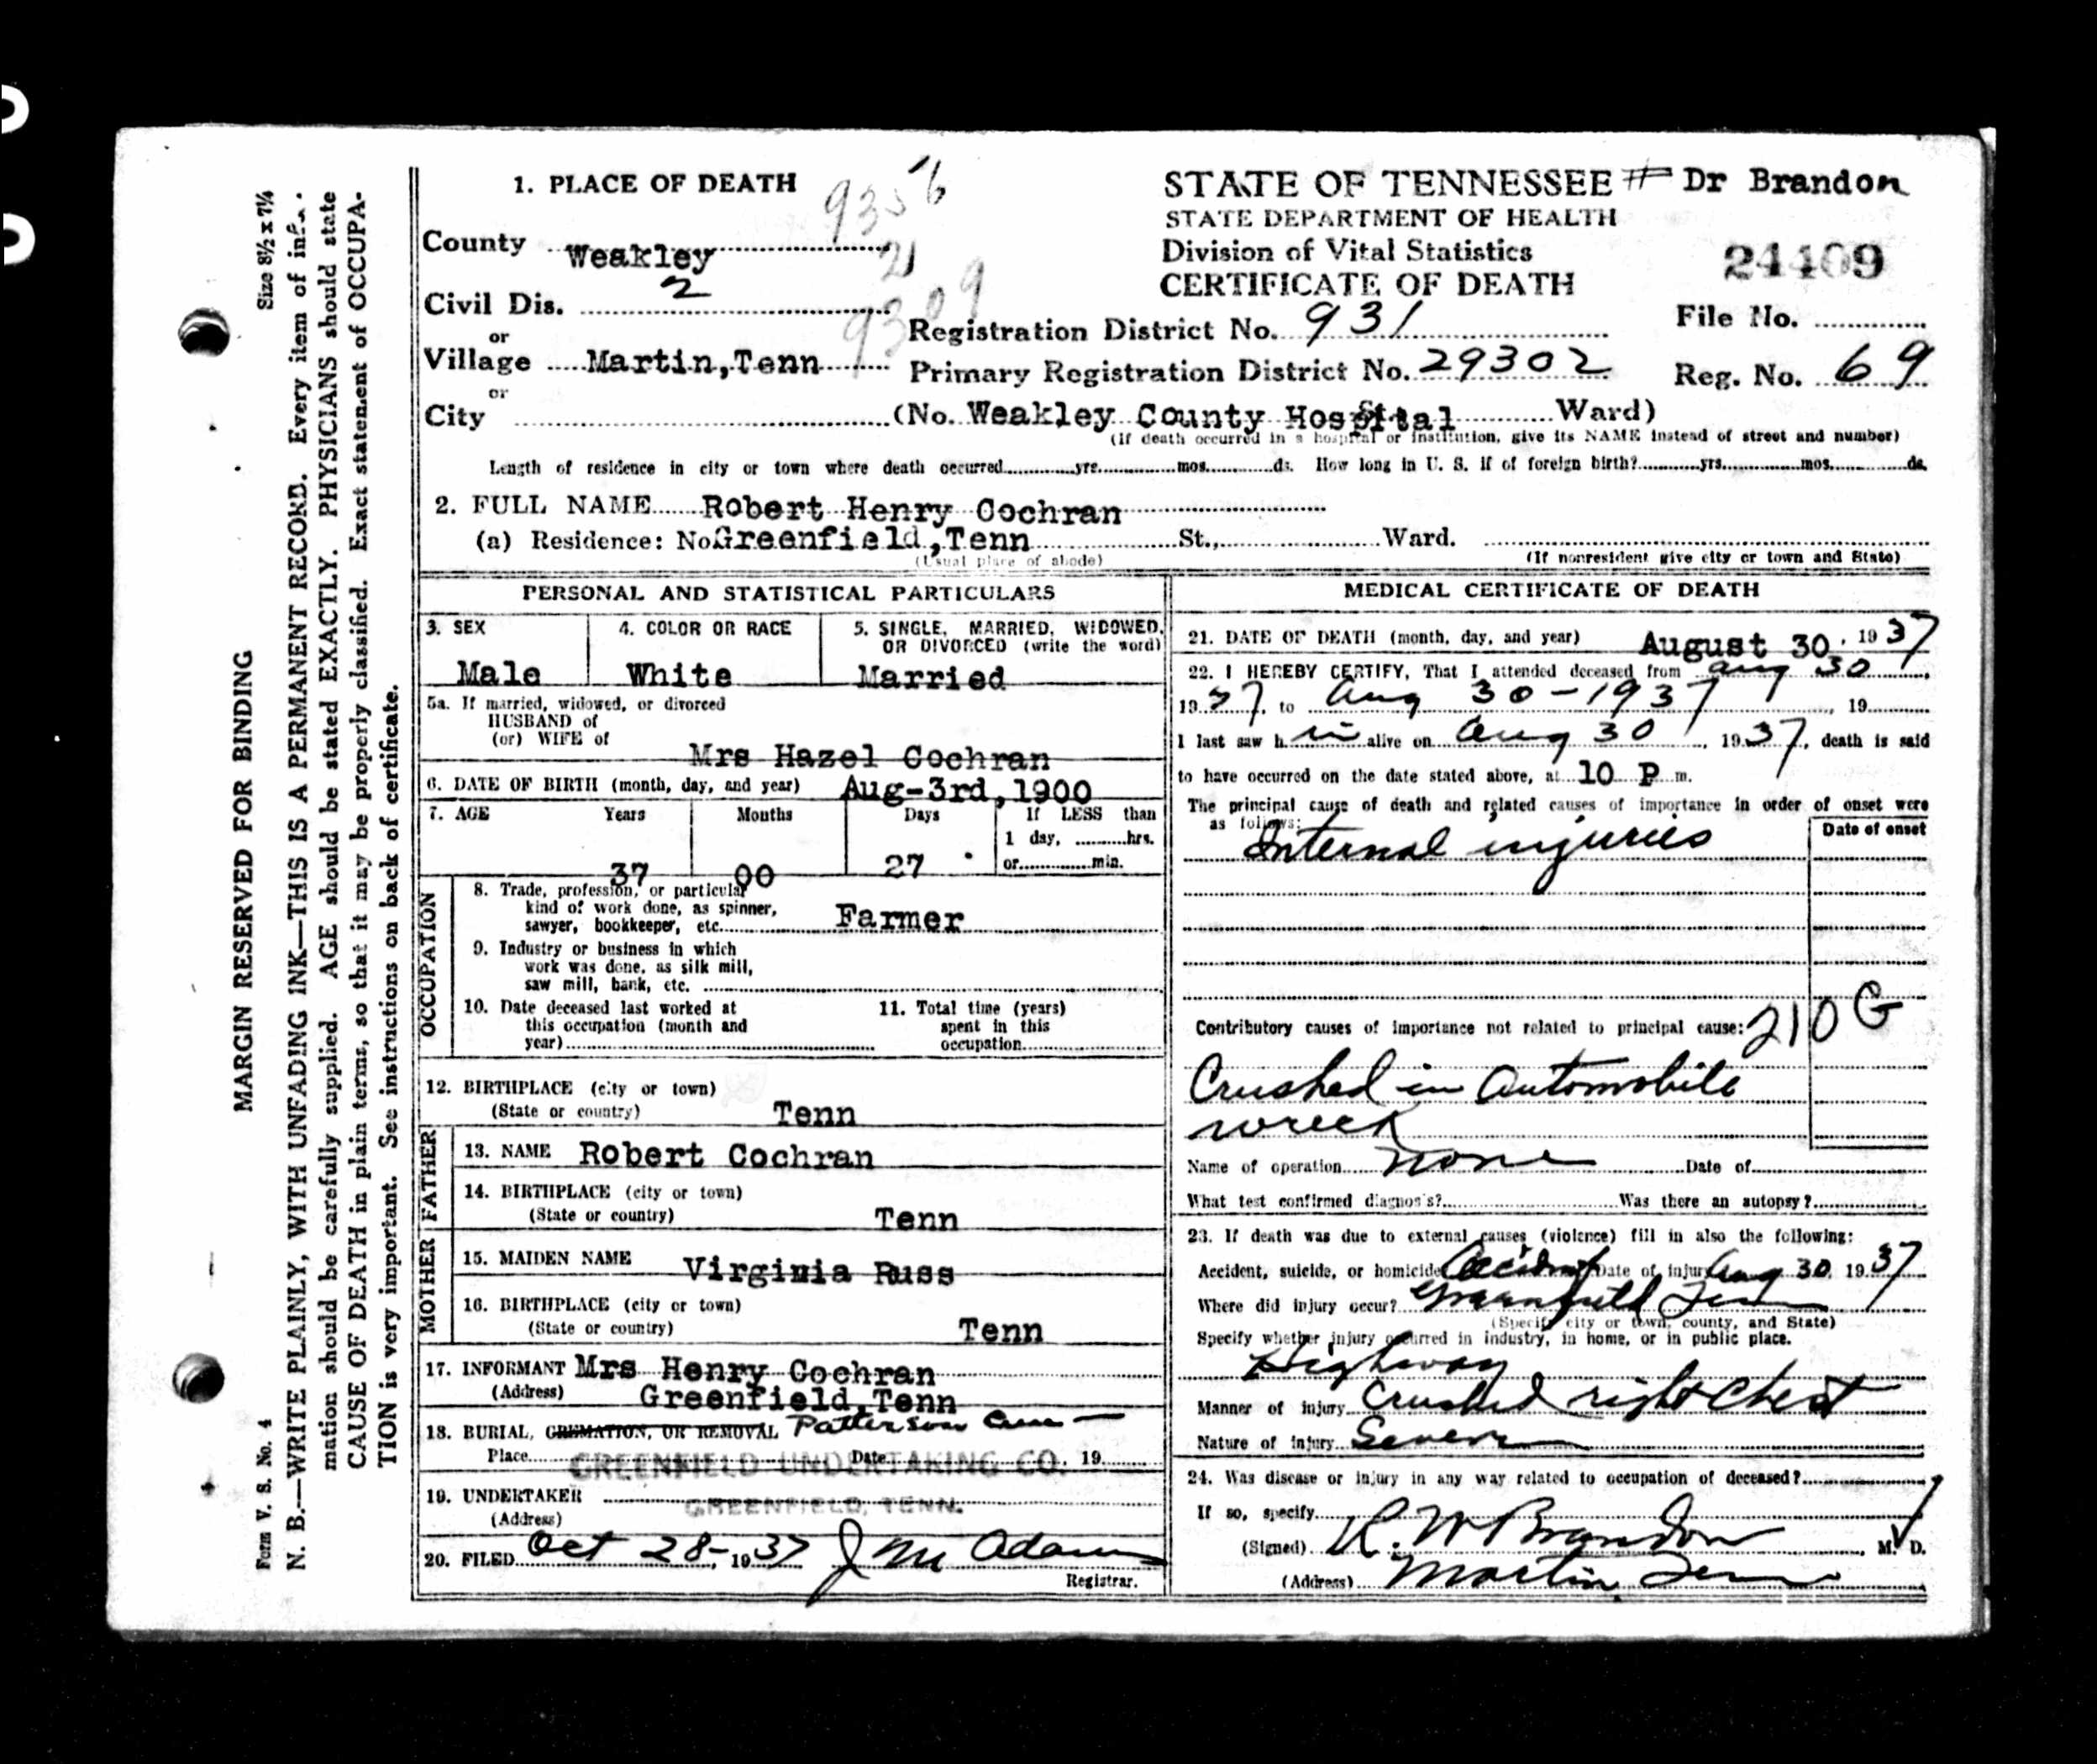 1. PLACE OF DEATH
9356
County Weakley
21
Civil Dis. 2
9309
or
Village Martin,Tenn
or
City (No. Weakley County Hospital St. Ward)
(If death occurred in a hospital or institution, give its NAME instead of street and number)
STATE OF TENNESSEE # Dr Brandon
STATE DEPARTMENT OF HEALTH
Division of Vital Statistics
CERTIFICATE OF DEATH
24409
Registration District No. 931
File No.
Primary Registration District No. 29302
Reg. No. 69
Length of residence in city or town where death occurred yrs. mos. ds. How long in U. S. if of foreign birth? yrs. mos. ds.
2. FULL NAME Robert Henry Cochran
(a) Residence: No. Greenfield,Tenn St., Ward.
(Usual place of abode) (If nonresident give city or town and State)
PERSONAL AND STATISTICAL PARTICULARS
3. SEX
Male
4. COLOR OR RACE
White
5. SINGLE, MARRIED, WIDOWED,
OR DIVORCED (write the word)
Married
5a. If married, widowed, or divorced
HUSBAND of
(or) WIFE of
Mrs Hazel Cochran
6. DATE OF BIRTH (month, day, and year) Aug-3rd,1900
7. AGE Years Months Days If LESS than
1 day, hrs.
or min.
37 00 27
OCCUPATION
8. Trade, profession, or particular
kind of work done, as spinner,
sawyer, bookkeeper, etc. Farmer
9. Industry or business in which
work was done, as silk mill,
saw mill, bank, etc.
10. Date deceased last worked at
this occupation (month and
year)
11. Total time (years)
spent in this
occupation
12. BIRTHPLACE (city or town)
(State or country) Tenn
FATHER
13. NAME Robert Cochran
14. BIRTHPLACE (city or town)
(State or country) Tenn
MOTHER
15. MAIDEN NAME Virginia Russ
16. BIRTHPLACE (city or town)
(State or country) Tenn
17. INFORMANT Mrs Henry Cochran
(Address) Greenfield,Tenn
18. BURIAL, CREMATION, OR REMOVAL Patterson Cem
Place Date 19
GREENFIELD UNDERTAKING CO.
19. UNDERTAKER
GREENFIELD, TENN.
(Address)
20. FILED Oct 28-, 1937 J M Adams
Registrar.
MEDICAL CERTIFICATE OF DEATH
21. DATE OF DEATH (month, day, and year) August 30, 1937
22. I HEREBY CERTIFY, That I attended deceased from Aug 30,
1937, to Aug 30-1937, 19
I last saw h im alive on Aug 30, 1937, death is said
to have occurred on the date stated above, at 10 P m.
The principal cause of death and related causes of importance in order of onset were
as follows:
Date of onset
Internal injuries
Contributory causes of importance not related to principal cause: 210 G
Crushed in Automobile
wreck
Name of operation None Date of
What test confirmed diagnosis? Was there an autopsy?
23. If death was due to external causes (violence) fill in also the following:
Accident, suicide, or homicide Accident Date of injury Aug 30, 1937
Where did injury occur? Greenfield Tenn
(Specify city or town, county, and State)
Specify whether injury occurred in industry, in home, or in public place.
Highway
Manner of injury Crushed right chest
Nature of injury Severe
24. Was disease or injury in any way related to occupation of deceased?
If so, specify
(Signed) R. W Brandon, M. D.
(Address) Martin Tenn
MARGIN RESERVED FOR BINDING
Form V. S. No. 4
Size 8½ x 7¼
N. B.—WRITE PLAINLY, WITH UNFADING INK—THIS IS A PERMANENT RECORD. Every item of infor-
mation should be carefully supplied. AGE should be stated EXACTLY. PHYSICIANS should state
CAUSE OF DEATH in plain terms, so that it may be properly classified. Exact statement of OCCUPA-
TION is very important. See instructions on back of certificate.